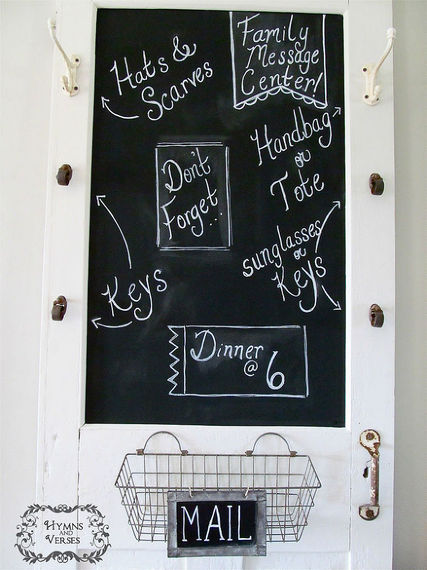 Family
Message
Center!
Hats &
Scarves
Handbag
or
Tote
Don't
Forget...
sunglasses
or
Keys
Keys
Dinner
@ 6
MAIL
HYMNS
AND
VERSES